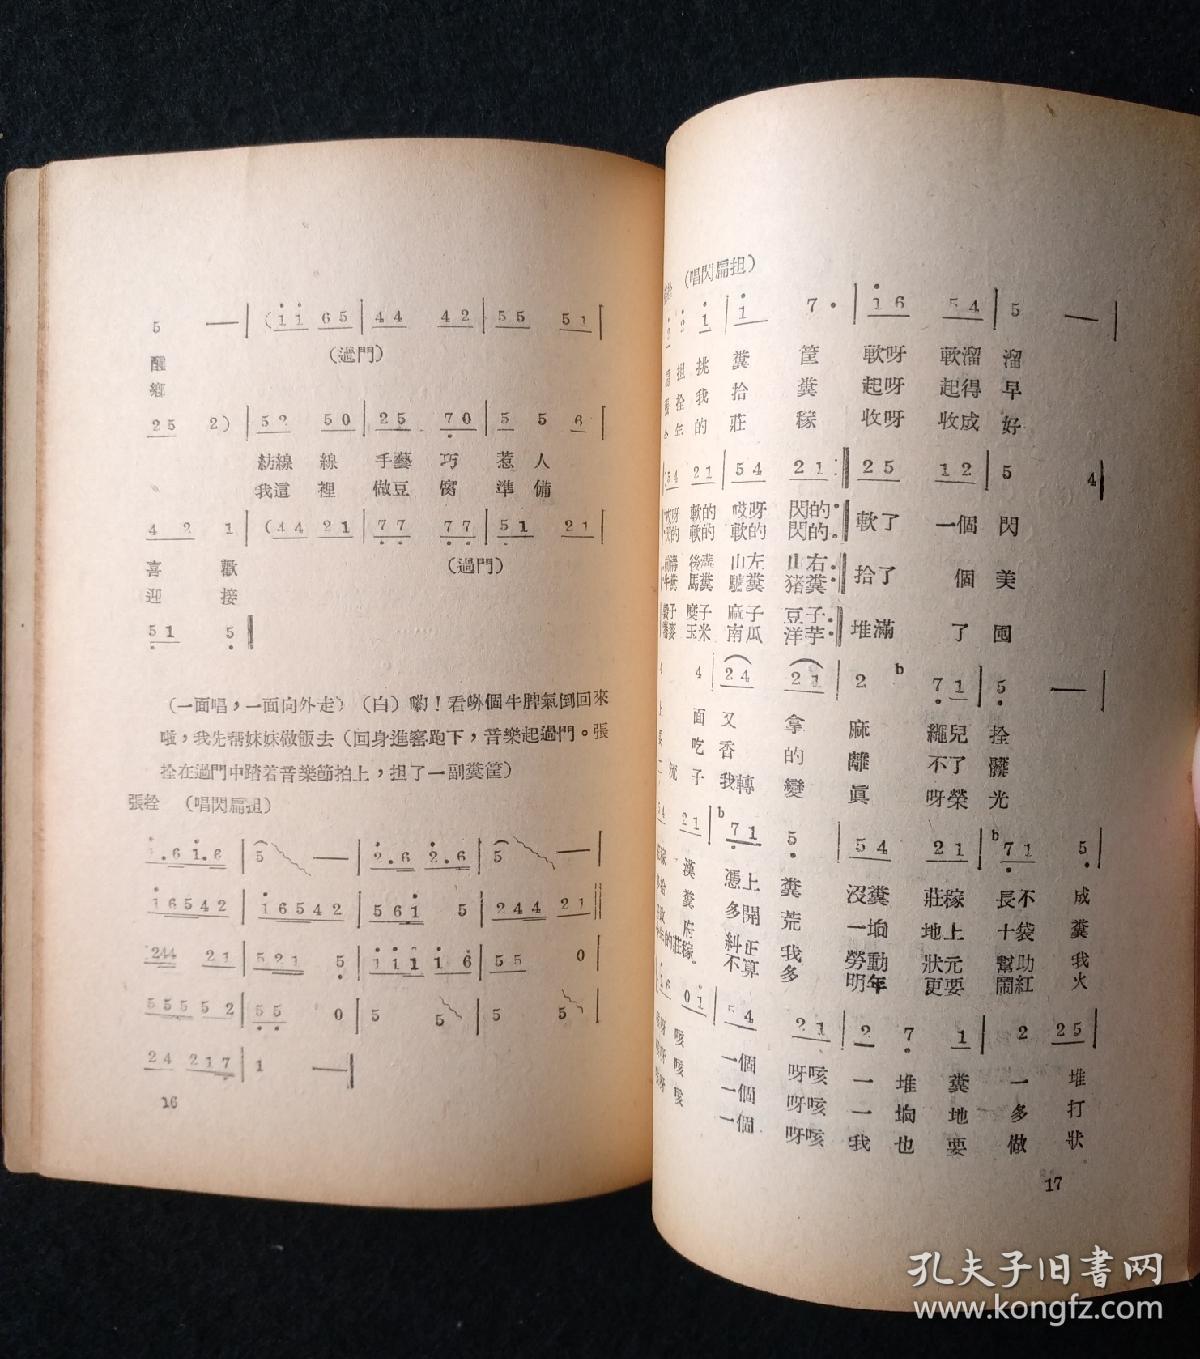 5 — | (i i 6 5 | 4 4 4 2 | 5 5 5 1 |
(過門)
2 5 2) | 5 2 5 0 | 2 5 7 0 | 5 5 6 |
紡線 線 手藝 巧 惹 人
我這 裡 做豆 腐 準 備
4 2 1 | (4 4 2 1 | 7 7 7 7 | 5 1 2 1 |
喜 歡 (過門)
迎 接
5 1 5 ‖
(一面唱，一面向外走)(白)喲！看咻個牛脾氣倒回來
啦，我先幇妹妹做飯去(回身進窰跑下，音樂起過門。張
拴在過門中踏着音樂節拍上，担了一副糞筐)
張拴 (唱閃扁担)
i.6 i.6 | 5 — | 2.6 2.6 | 5 — |
i6542 | i6542 | 56i 5 | 244 21 ‖
244 21 | 521 5 | iiii i6 | 55 0 |
5555 52 | 55 0 | 5 5 | 5 5 |
24 217 | 1 — ‖
16
(唱閃扁担)
2 i | i 7. | i6 54 | 5 — |
担 挑 糞 筐 軟呀 軟溜 溜
拴 我 拾 糞 起呀 起得 早
的 莊 稼 收呀 收成 好
54 21 | 54 21 ‖ 25 12 | 5 4 |
軟的 哎呀 閃的 軟了 一個 閃
軟的 軟的 閃的
後溝 山左 山右 拾了 個 美
馬糞 驢糞 猪糞
糜子 麻子 豆子 堆滿 了 囤
玉米 南瓜 洋芋
4 | 24 21 | 2 b7 1 | 5 — |
面 又 拿 麻 繩兒 拴
吃 香 的 離 不了 髒
子 我轉 變 眞 呀榮 光
54 21 | b7 1 5 | 54 21 | b7 1 5 |
漢 張上 糞 沒糞 莊稼 長不 成
糞 多開 荒 一垧 地上 十袋 糞
府 糾正 我 勞動 狀元 幫助 我
的莊稼. 不算 多 明年 更要 鬧紅 火
6 0 i | 54 21 | 2 7 1 | 2 25 |
呀 咳 一個 呀咳 一 堆 糞 一 堆
呀 咳 一個 呀咳 一 垧 地 多 打
呀 咳 一個 呀咳 我 也 要 做 狀
17
孔夫子旧書网
www.kongfz.com